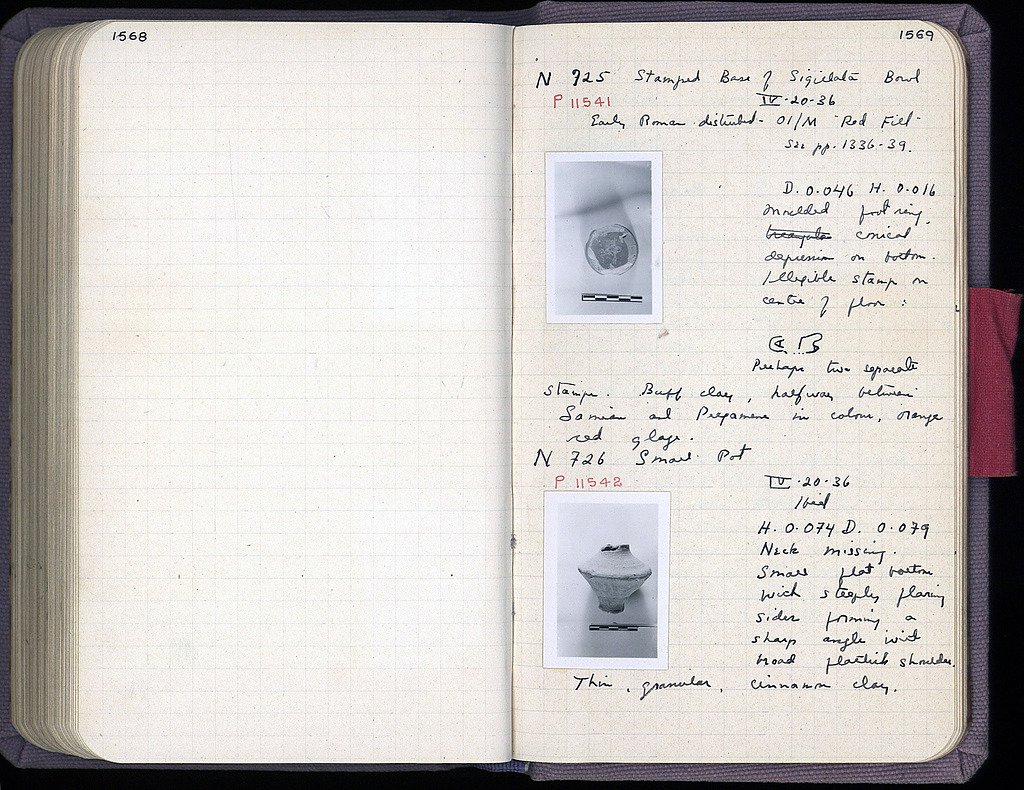 1568
1569
N 725 Stamped Base of Sigillata Bowl
P 11541
IV-20-36
Early Roman disturbed - 01/M "Red Fill"
See pp. 1336-39.
D. 0.046 H. 0.016
Moulded foot ring,
conical
depression on bottom.
Illegible stamp on
centre of floor :
Perhaps two separate
stamps. Buff clay, halfway between
Samian and Pergamene in colour, orange
red glaze.
N 726 Small Pot
P 11542
IV-20-36
Ibid
H. 0.074 D. 0.079
Neck missing.
Small flat bottom
with steeply flaring
sides forming a
sharp angle with
broad flattish shoulder.
Thin, granular, cinnamon clay.